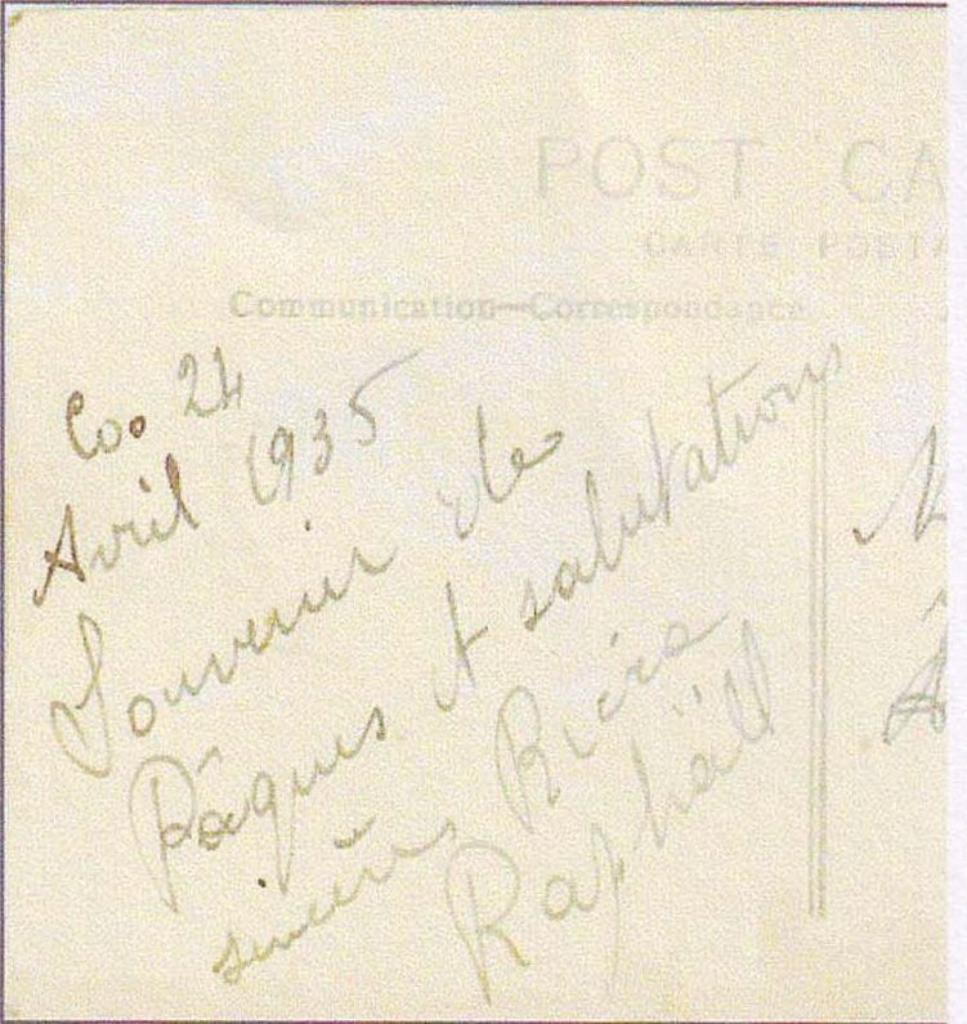 POST CA
CARTE POSTA
Communication—Correspondance
24
Avril 1935
Souvenir de
Pâques et salutations
sincères
Raphaël